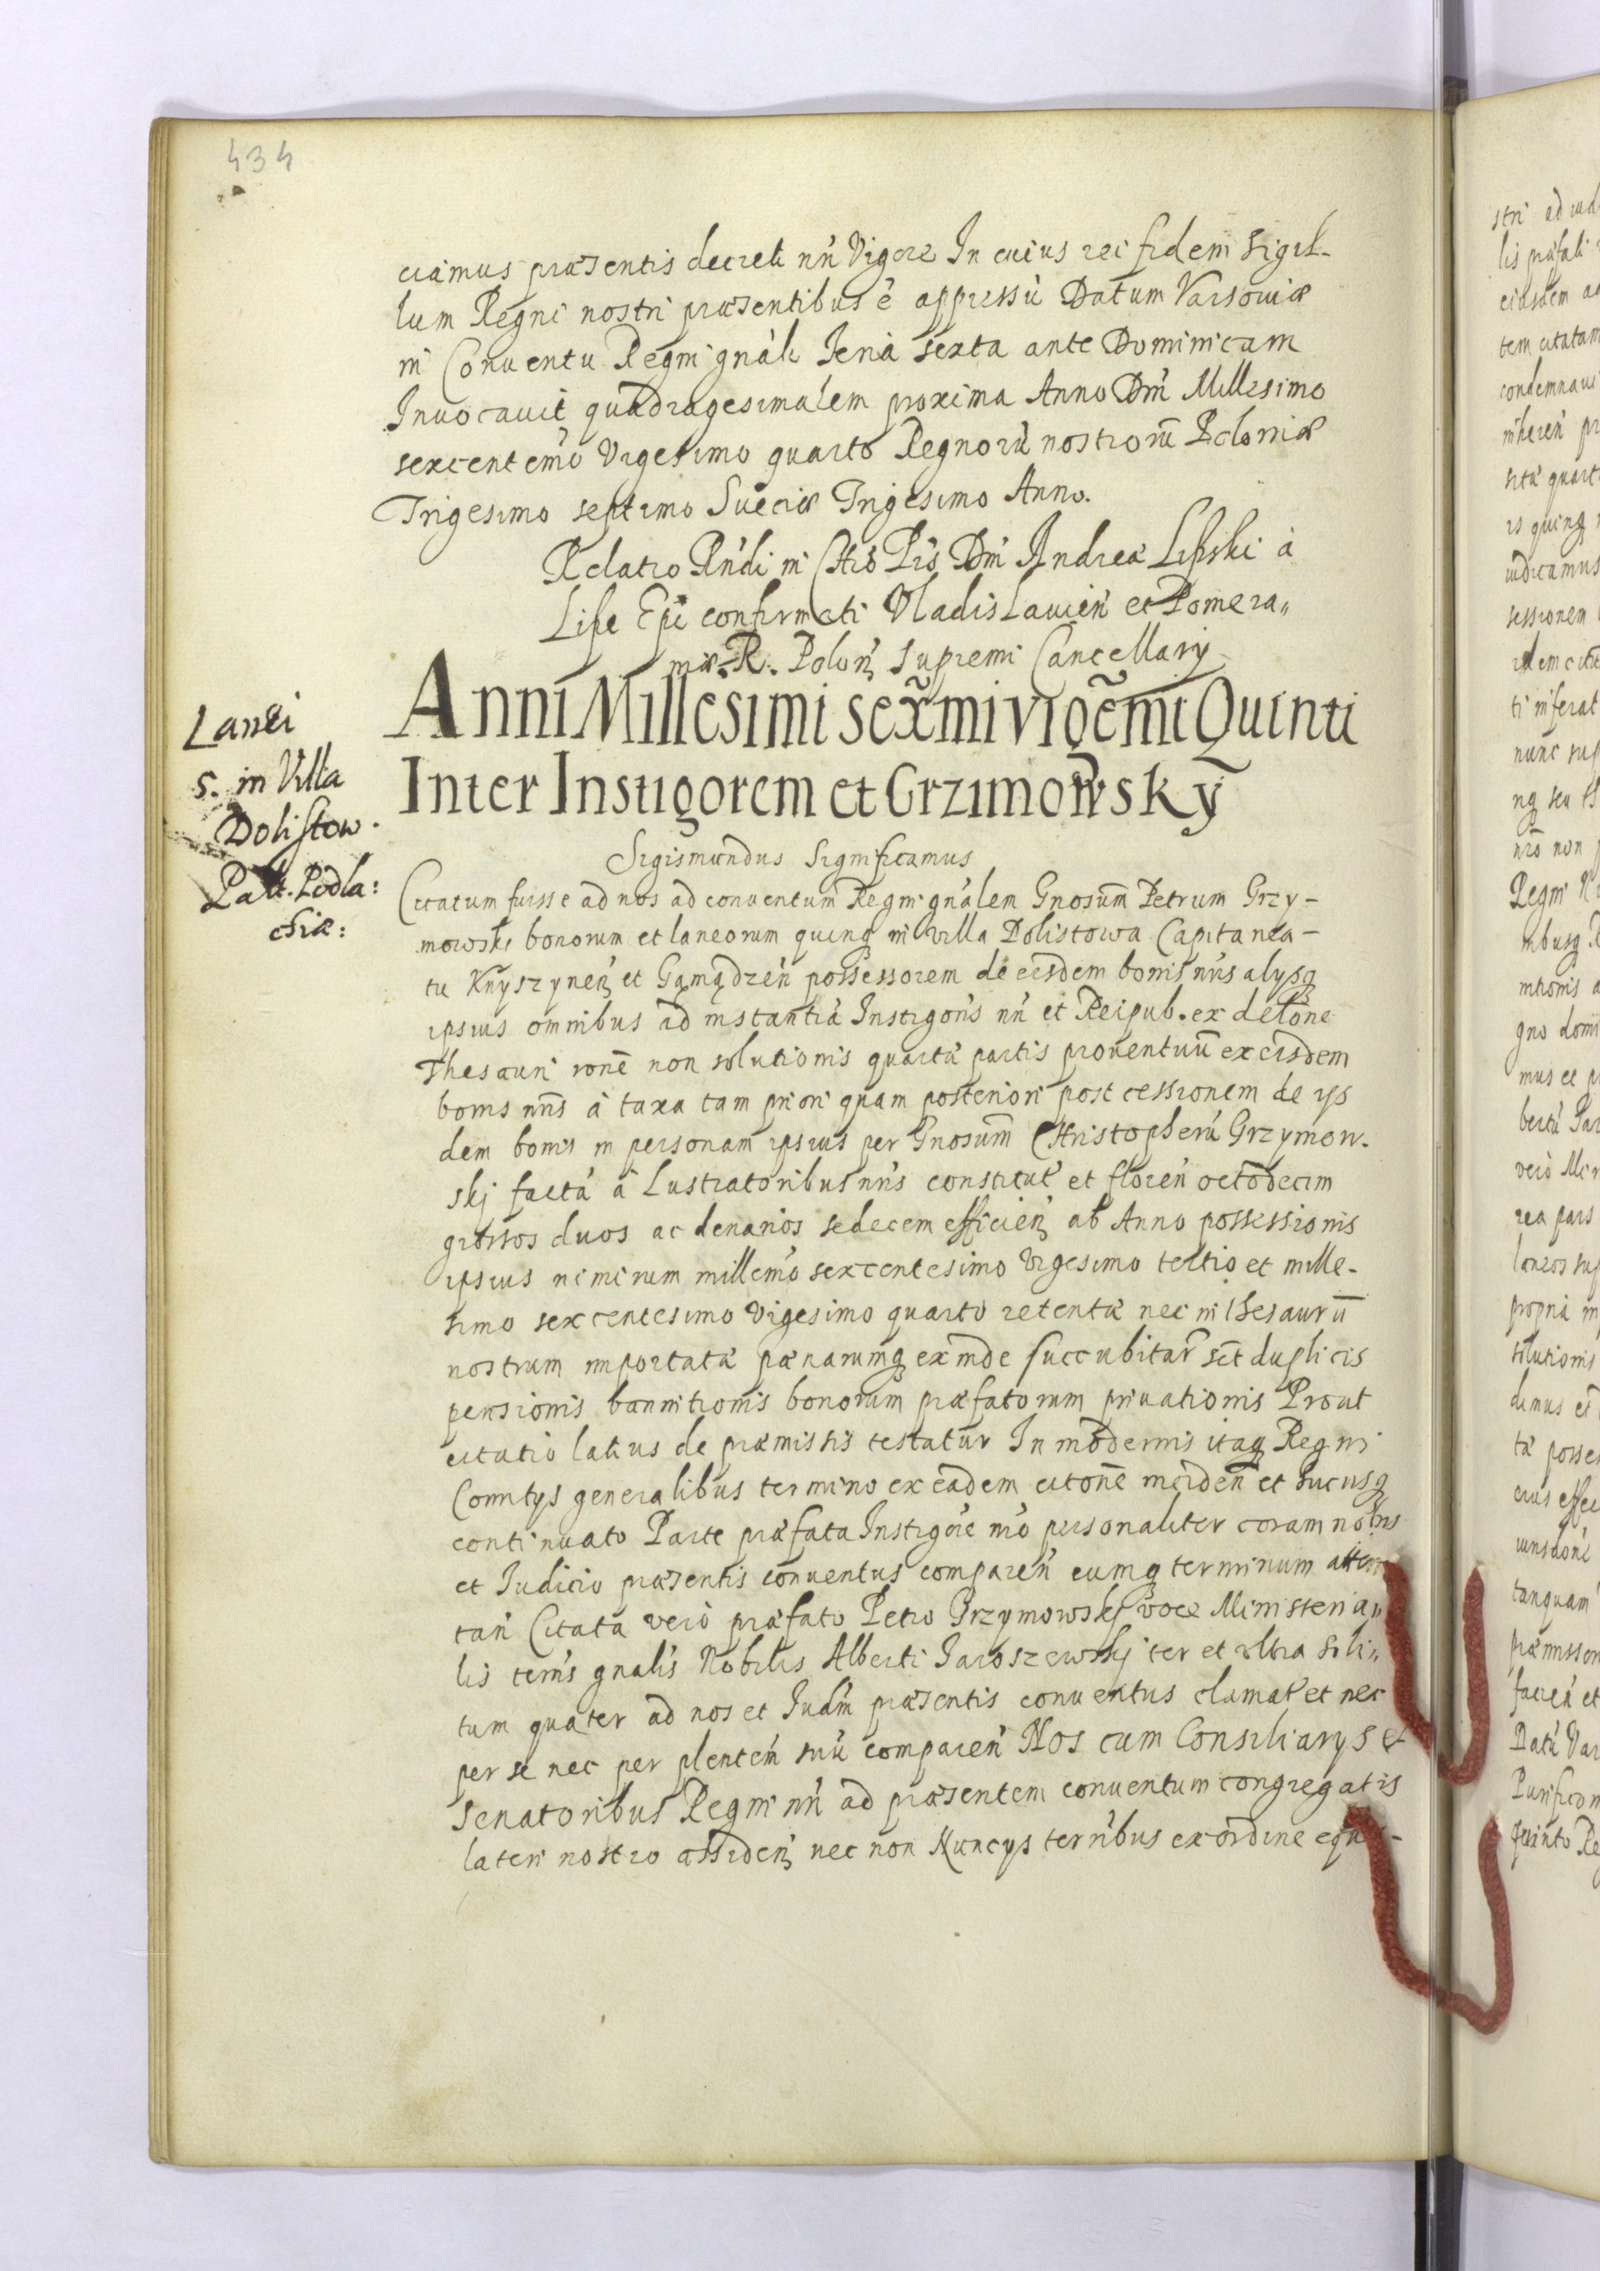 434
ciamus præsentis decreti nři Vigore In cuius rei fidem Sigil-
lum Regni nostri præsentibus ẽ appressũ Datum Varsoviæ
in Conventu Regni gnãli Feria sexta ante Dominicam
Invocavit quadragesimalem proxima Anno Dñi Millesimo
sexcentemo Vigesimo quarto Regnorũ nostrorũ Poloniæ
Trigesimo septimo Sueciæ Trigesimo Anno.
Relatio Rñdi in Chrõ Pris Dñi Andreæ Lipski à
Lipe Epi confirmati Vladislavieñ et Pomera„
niæ. R. Poloñ Supremi Cancellarij
Anni Millesimi sexmi vigemi Quinti
Inter Instigorem et Grzimowsky
Lanei
5. in Villa
Dolistow.
Palt. Podla:
chiæ:
Sigismundus Significamus
Citatum fuisse ad nos ad conventum Regni gnãlem Gnosum Petrum Grzy-
mowski bonorum et laneorum quinq in villa Dolistowa Capitanea-
tu Knyszyneñ et Gąmądzeñ possessorem de eisdem bonis nris alysq
ipsius omnibus ad instantiã Instigoris nri et Reipub. ex delõne
Thesauri rõne non solutionis quartæ partis proventuũ ex eisdem
bonis nris à taxa tam priori quam posteriori post cessionem de ijs
dem bonis in personam ipsius per Gnosum Christopherũ Grzymow-
skj factã à Lustratoribus nris constitut et floreñ octodecim
grossos duos ac denarios sedecem efficieñ ab Anno possessionis
ipsius nimirum millemo sexcentesimo Vigesimo tertio et mille-
simo sexcentesimo Vigesimo quarto retentæ nec in thesaurũ
nostrum importatæ pænarumq exinde succubitar sct duplicis
pensionis bannitionis bonorum præfatorum privationis Prout
citatio latius de præmissis testatur In modernis itaq Regni
Comitys generalibus termino ex eadem citone incideñ et hucusq
continuato Parte præfata Instigore nro personaliter coram nobis
et Judicio præsentis conventus compareñ eumq terminum atten
tañ Citata verò præfato Petro Grzymowskj voce Ministeria„
lis terris gnalis Nobilis Alberti Jaroszewskj ter et ultra soli„
tum quater ad nos et Judm præsentis conventus clamat et nec
per se nec per plentem suũ compareñ Nos cum Consiliarys et
Senatoribus Regni nri ad præsentem conventum congregatis
lateri nostro assideñ nec non Nuncys terribus ex ordine eque-